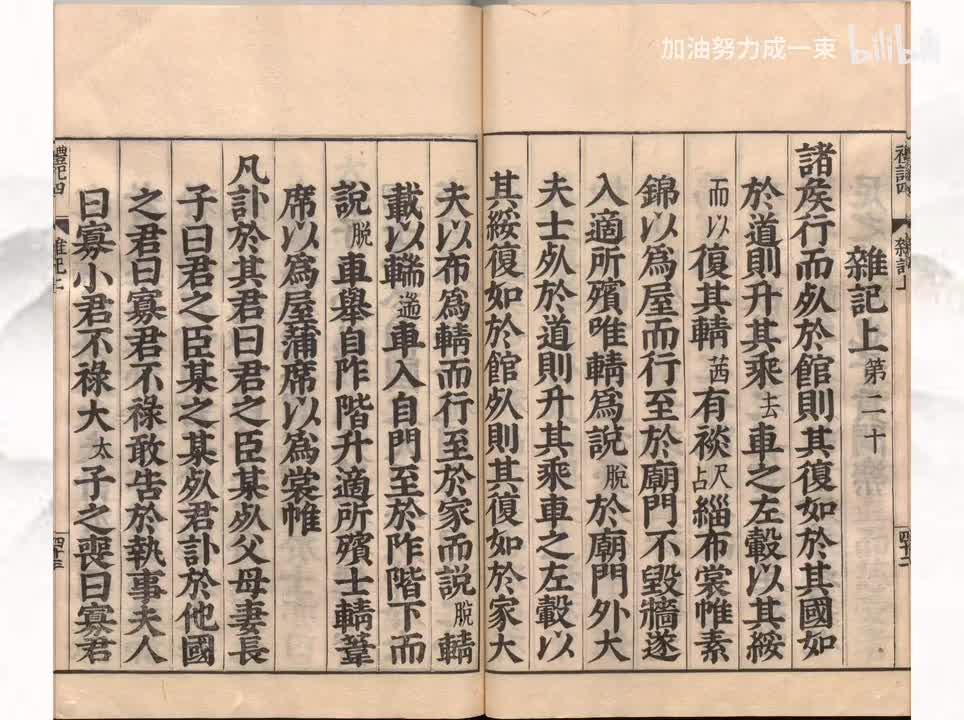 加油努力成一束 bilibili
雜記上 第二十
諸矦行而死於館則其復如於其國如
於道則升其乘去車之左轂以其綏
而以復其輤茜有裧尺占緇布裳帷素
錦以為屋而行至於廟門不毀牆遂
入適所殯唯輤為說脫於廟門外大
夫士死於道則升其乘車之左轂以
其綏復如於館死則其復如於家大
夫以布為輤而行至於家而說脫輤
載以輲遄車入自門至於阼階下而
說脫車舉自阼階升適所殯士輤葦
席以為屋蒲席以為裳帷
凡訃於其君曰君之臣某死父母妻長
子曰君之臣某之某死君訃於他國
之君曰寡君不祿敢告於執事夫人
曰寡小君不祿大太子之喪曰寡君
禮記四
雜記上
四十二
禮記四
雜記上
四十三